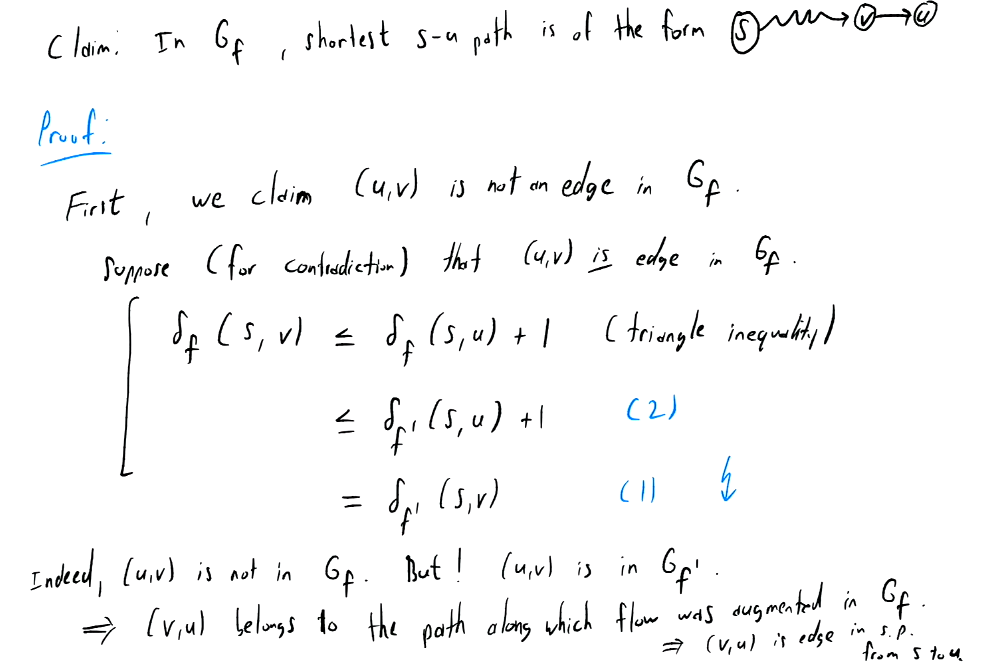 Claim: In G_f, shortest s-u path is of the form S v u
Proof:
First, we claim (u,v) is not an edge in G_f.
Suppose (for contradiction) that (u,v) is edge in G_f.
δ_f (s, v) ≤ δ_f (s, u) + 1 (triangle inequality)
≤ δ_f' (s, u) + 1 (2)
= δ_f' (s, v) (1) ↯
Indeed, (u,v) is not in G_f. But! (u,v) is in G_f'.
⇒ (v,u) belongs to the path along which flow was augmented in G_f.
⇒ (v,u) is edge in s.p.
from s to u.